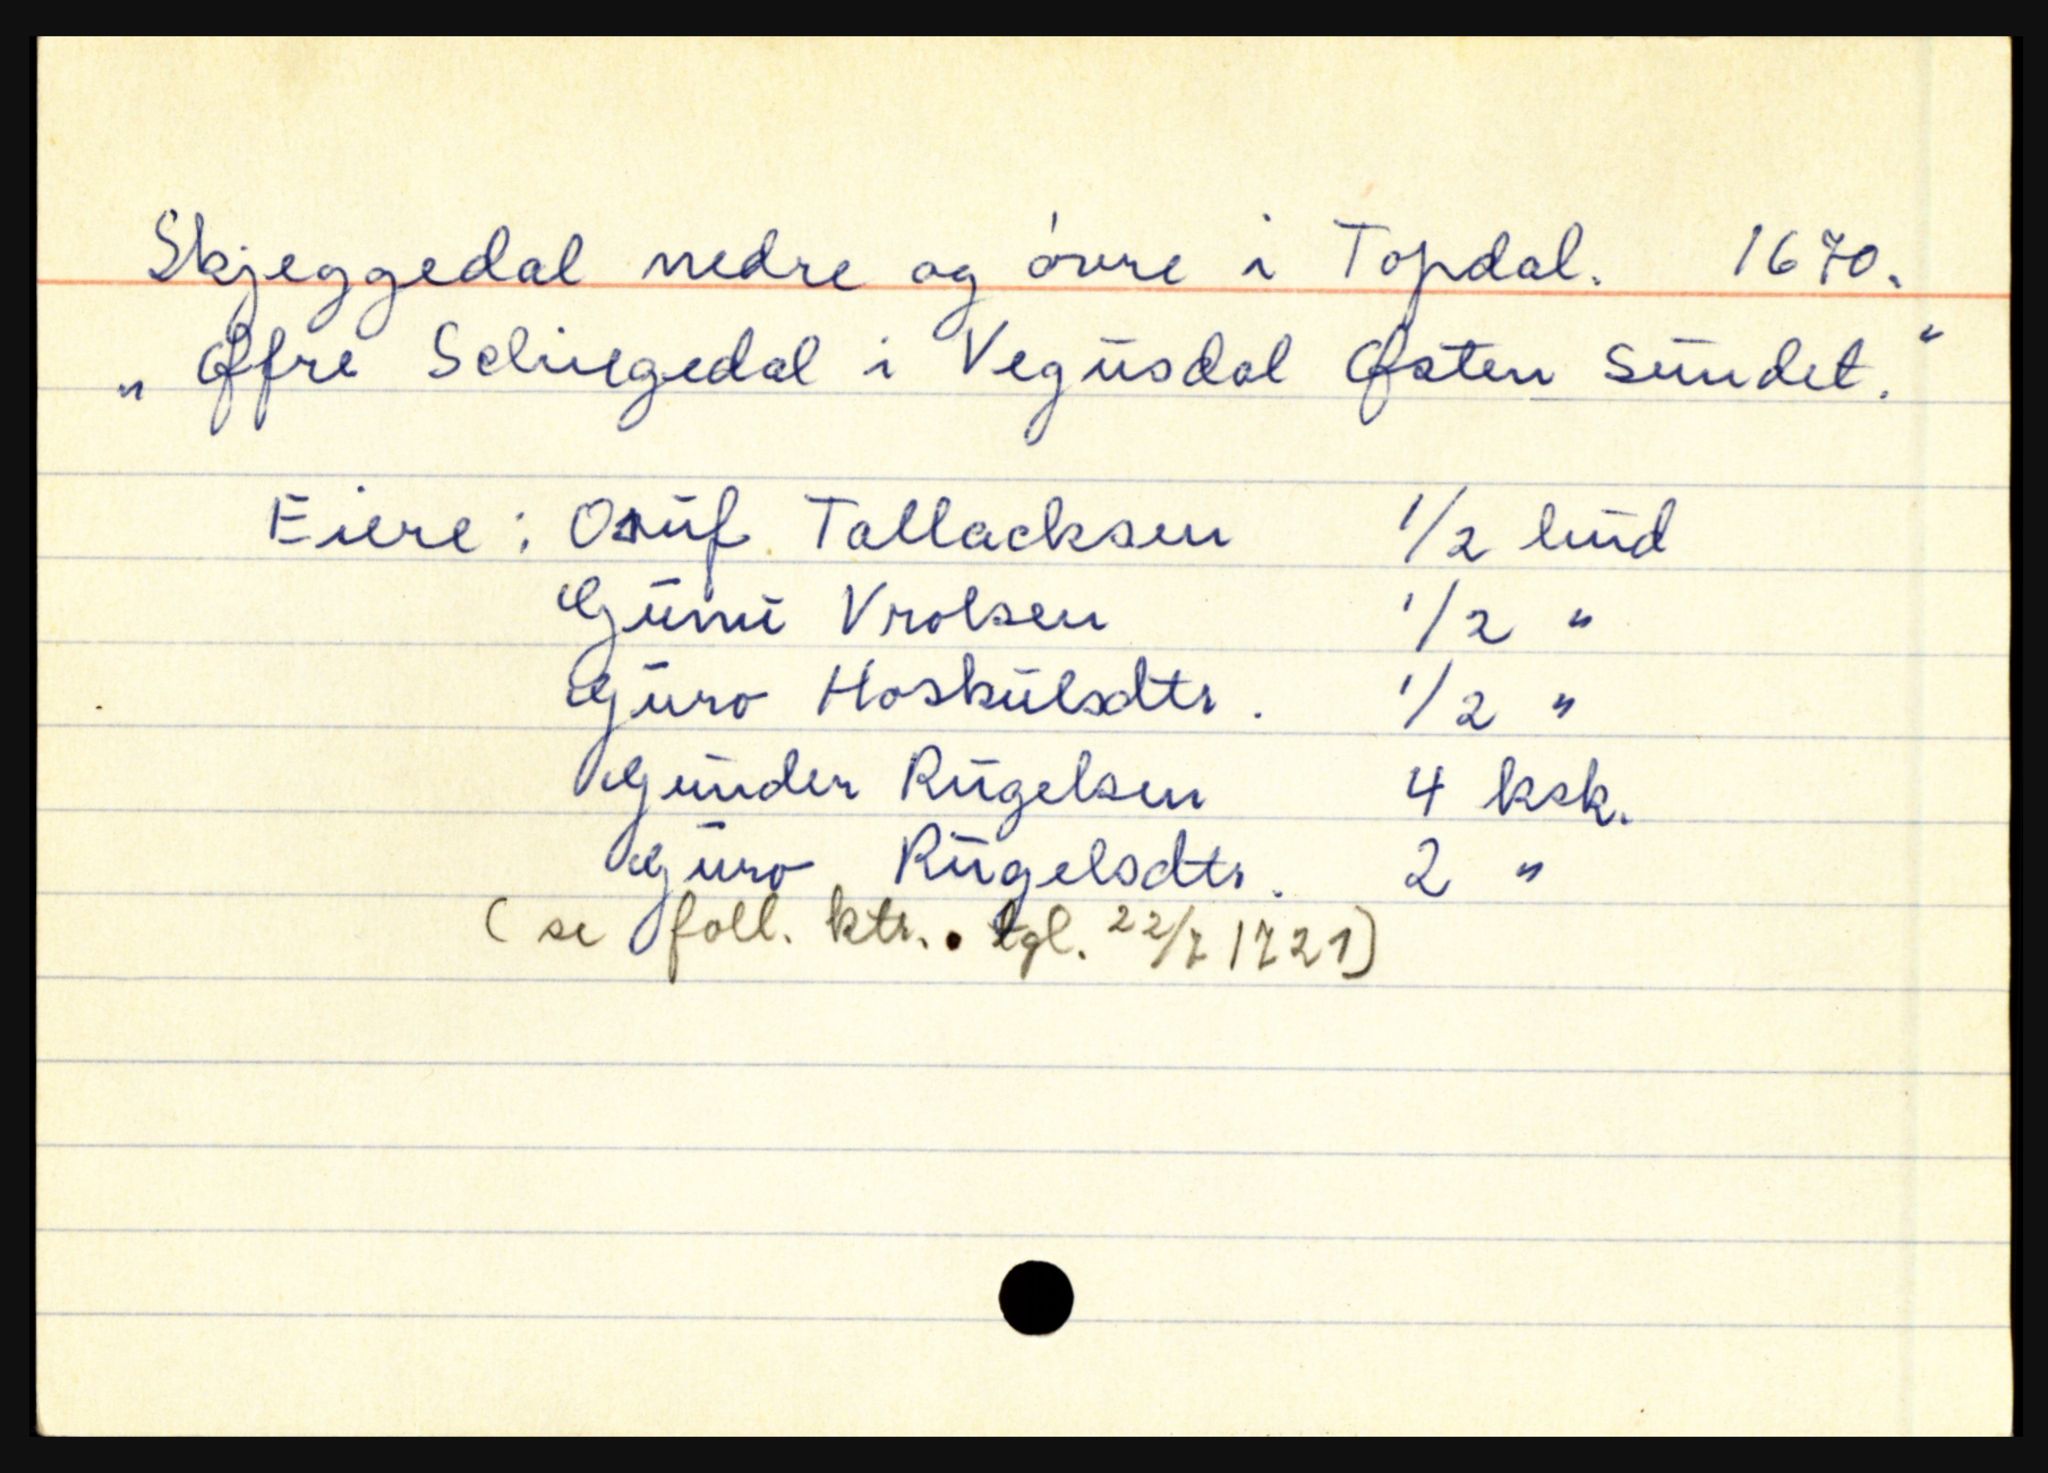 Skjeggedal nedre og øvre i Topdal. 1670.
„Øffre Schiegedal i Vegusdal Østen Sundet.“
Eiere: Osuf Tallacksen 1/2 hud
Guni Vrolsen 1/2 "
Guro Hoskulsdtr. 1/2 "
Gunder Rugelsen 4 ksk.
Guro Rugelsdtr. 2 "
(se foll. ktr. tgl. 22/7 1721)